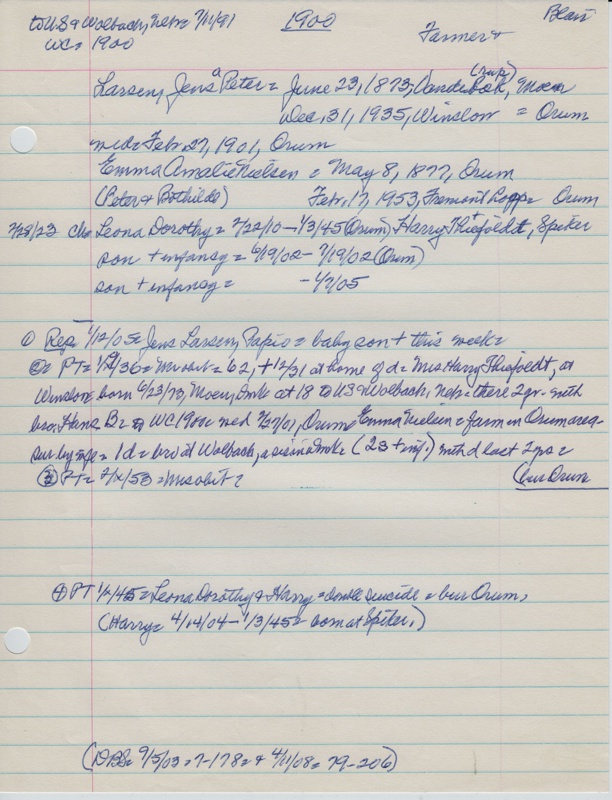 to U.S & Wolbach, Nebr= 7/11/91 1900 Blair
WC= 1900 Farmer+
Larsen, Jens Peter = June 23, 1873, Moen
Dec, 31, 1935, Winslow = Orum
med= Febr. 27, 1901, Orum
Emma Amalie Nielsen = May 8, 1877, Orum
(Peter & Bothilde) Febr. 17, 1953, Fremont Hosp= Orum
7/28/23 ch= Leona Dorothy = 7/22/10 – 1/3/45 (Orum), Harry Thiefoldt+, Spiker
son + infancy = 6/19/02 – 7/19/02 (Orum)
son + infancy = – 1/7/05
① Rep= 1/12/05= Jens Larsen, Papio = baby son + this week=
② PT= 36= Mr obit = 62, + 12/31 at home of d= Mrs Harry Thiefoldt, at
Winslow= born 6/23/73, Moen, Dmk at 18 to US Wolbach, Nebr= there 2 yr= with
bro. Hans B= to WC 1900= med 2/27/01, Orum, Emma Nielsen = farm in Orum area-
sur. by wife = 1d = bro at Wolbach, a sis in Dmk= (2s + inf.) with d last 2 yrs=
③ PT= 53= Mrs obit= (bur Orum
④ PT 45= Leona Dorothy & Harry = double suicide = bur Orum,
(Harry= 4/14/04 – 1/3/45= born at Spiker.)
(DBS= 9/5/03= 7-178= & 4/11/08= 79-206)